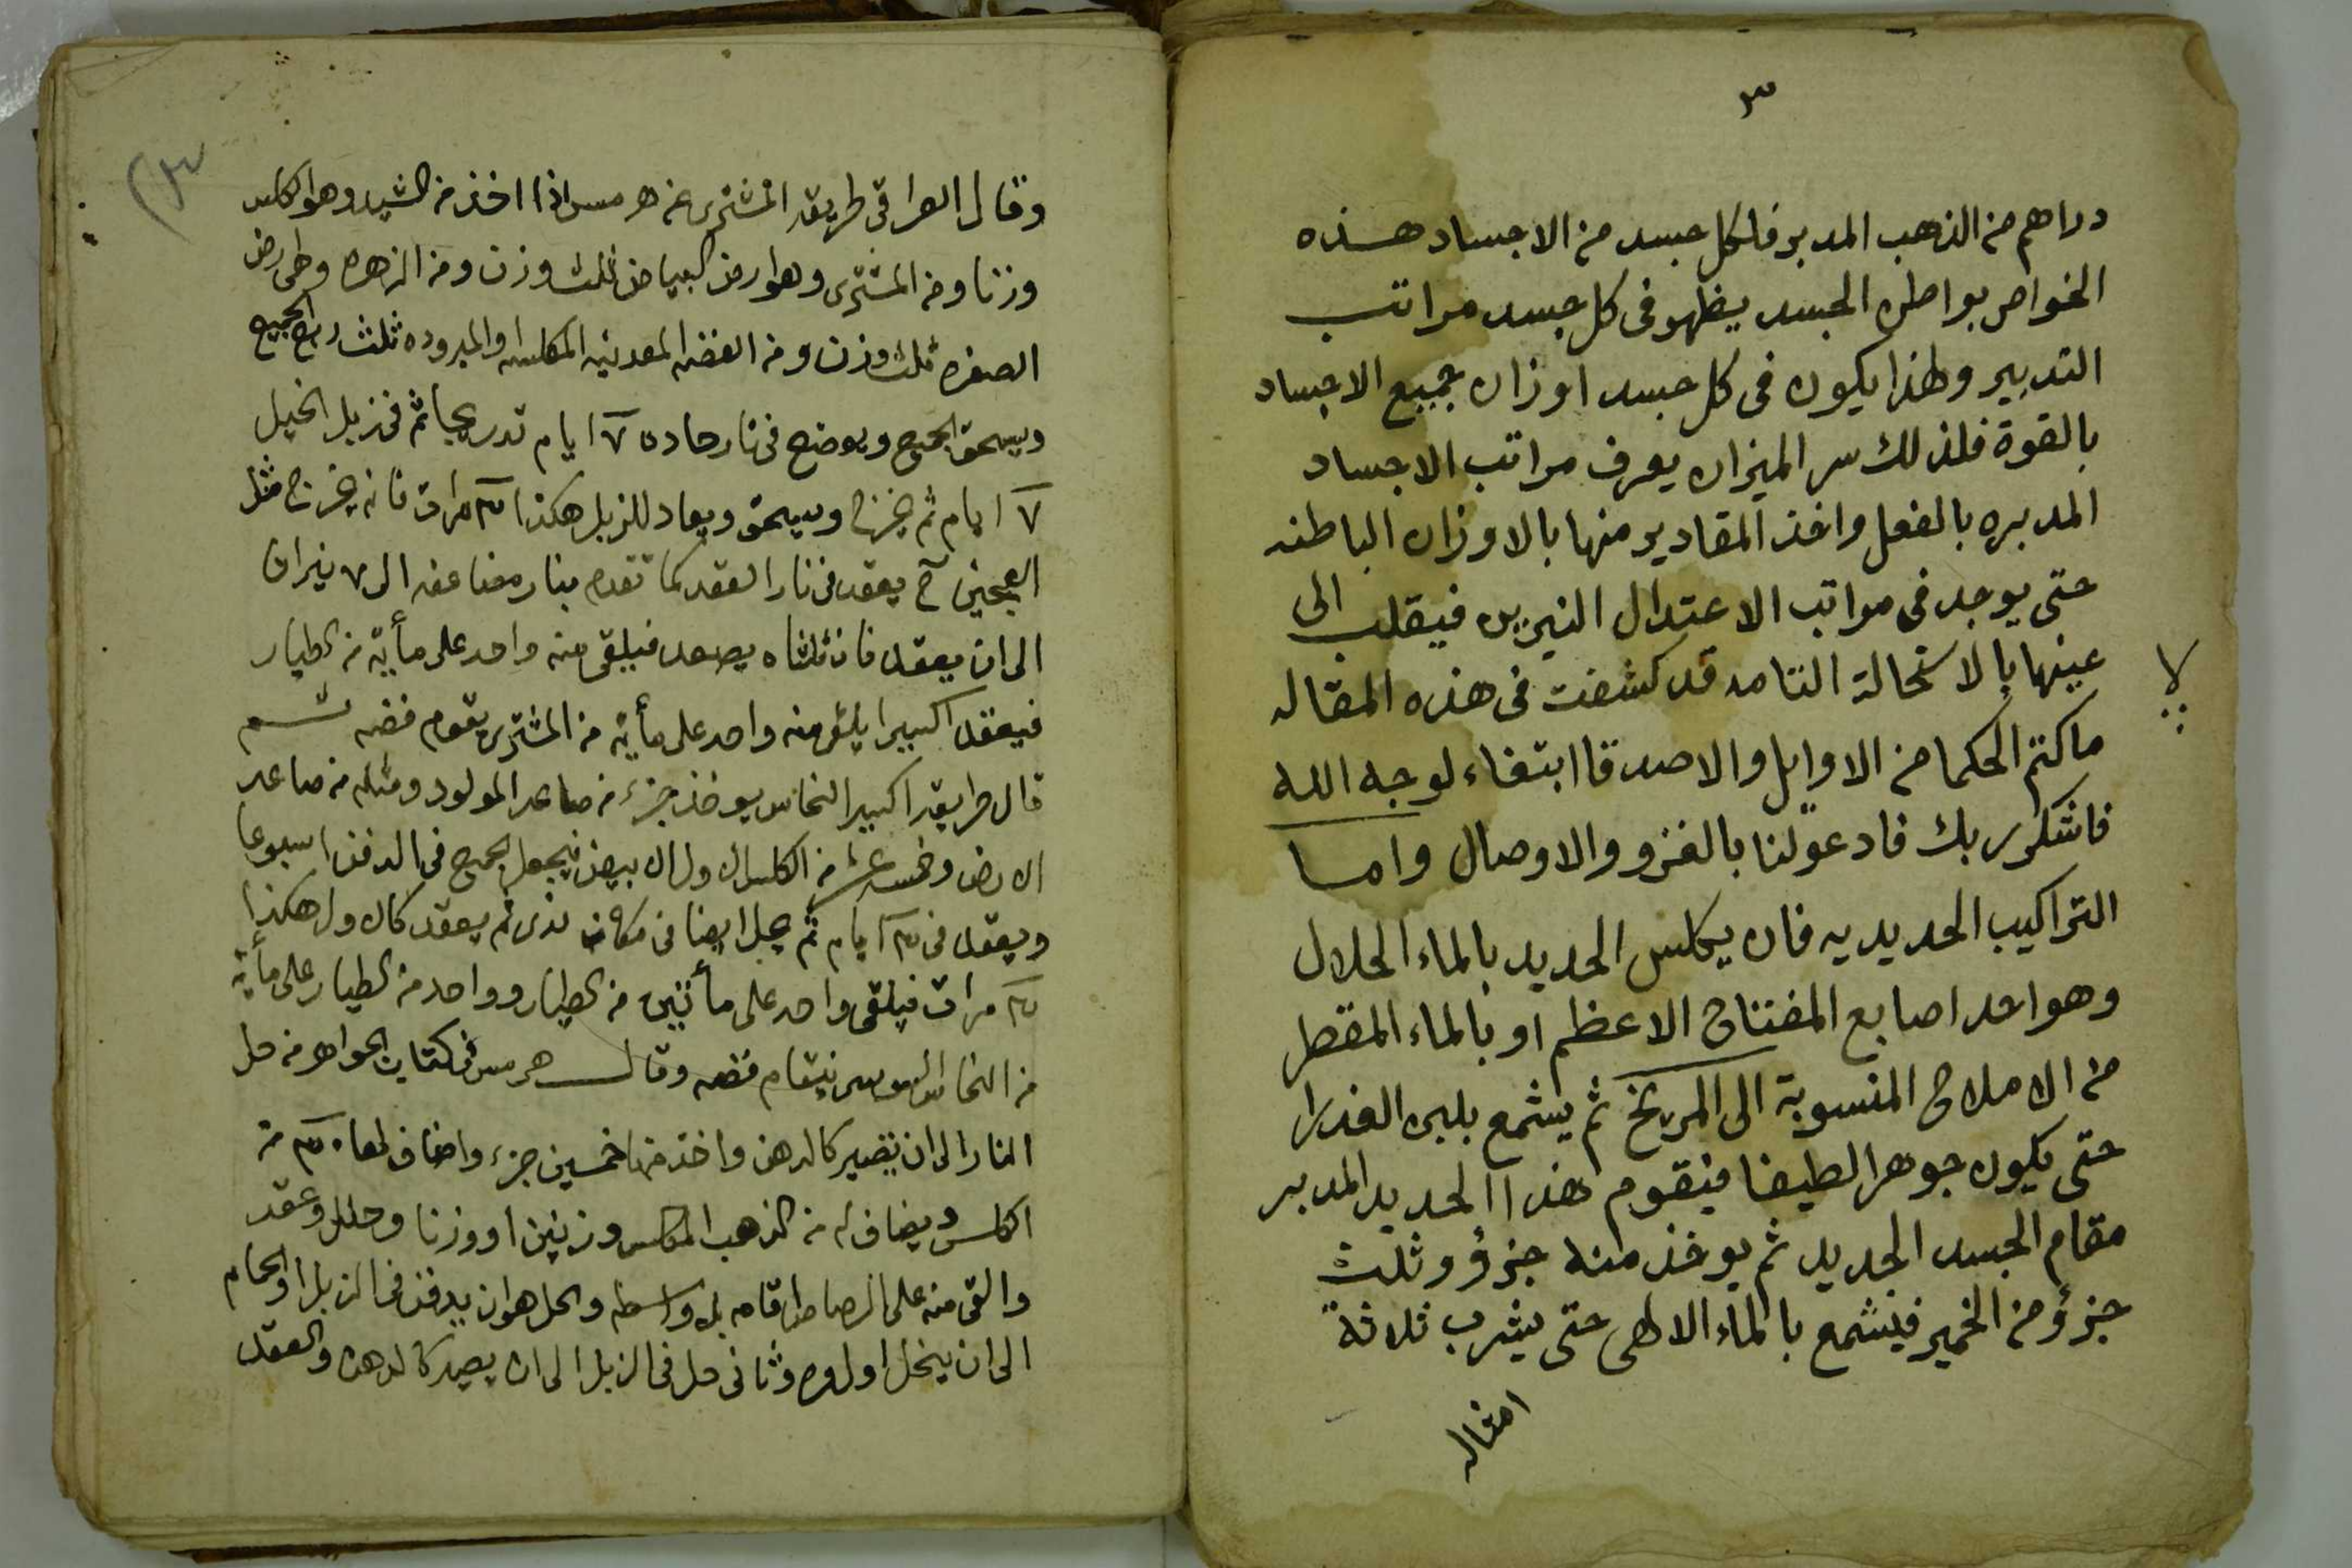 ٣
دراهم من الذهب المدبر فلكل جسد من الاجساد هذه
الخواص بواطن الجسد يظهر فى كل جسد مراتب
التدبير ولهذا يكون فى كل جسد اوزان جميع الاجساد
بالقوة فلذلك سر الميزان يعرف مراتب الاجساد
المدبره بالفعل واخذ المقادير منها بالاوزان الباطنه
حتى يوجد فى مراتب الاعتدال النيرين فيقلب الى
عينها بالاستحالة التامه قد كشفت فى هذه المقاله
ماكتم الحكما من الاوايل والاصدقا ابتغاء لوجه الله
فاشكر ربك فادعو لنا بالفزو والاوصال واما
التراكيب الحديديه فان يكلس الحديد بالماء الحلال
وهو احد اصابع المفتاح الاعظم او بالماء المقطر
من الاملاح المنسوبة الى المريخ ثم يشمع بلبن العذرا
حتى يكون جوهرا لطيفا فيقوم هذا الحديد المدبر
مقام الجسد الجديد ثم يوخذ منه جزؤ وثلث
جزؤ من الخمير فيشمع بالماء الالهى حتى يشرب ثلاثة
امثاله
وقال العراقى طريقه المشترى عن هرمس اذا اخذ من الشيد وهو الكلس
وزنا ومن المشترى وهو ارض البياض ثلث وزن ومن الزهره وهى ارض
الصفره ثلث وزن ومن الفضه المعدنيه المكلسه والمبروده ثلث ربع الجميع
ويسحق الجميع ويوضع فى نار حاده ٧ ايام تدريجيا ثم فى زبل الخيل
٧ ايام ثم يخرج ويسحق ويعاد للزبل هكذا ٣ مرات فانه يخرج مثل
العجين ثم يعقد فى نار العقد كما تقدم بنار مضاعفه الى ٧ نيران
الى ان يعقد فان ثلثاه يصعد فيلقى منه واحد على مأية من الطيار
فيعقد اكسيرا يلقى منه واحد على مأية من المشترى يقوم فضه
قال طريقه اكسير النحاس يوخذ جزء من صاعد المولود ومثله من صاعد
الارض وخمسة عشر من الكلس الاول الابيض فيجعل الجميع فى الدفن اسبوعا
ويعقد فى ٣ ايام ثم يحل ايضا فى مكان ندى ثم يعقد كالاول هكذا
٣ مرات فيلقى واحد على مأتين من الطيار وواحد من الطيار على مأية
من النحاس فيقام فضه وقال هرمس فى كتاب الجواهر من حل
النار الى ان يصير كالدهن واخذ منها خمسين جزء واضاف لها ٣ من
الكلس ويضاف له من الذهب المكلس وزنين او وزنا وحلل وعقد
والقى منه على الرصاص اقامه بلا واسطه والحل هو ان يدفن فى الزبل او الحمام
الى ان ينحل اول مره وثانى حل فى الزبل الى ان يصير كالدهن والعقد